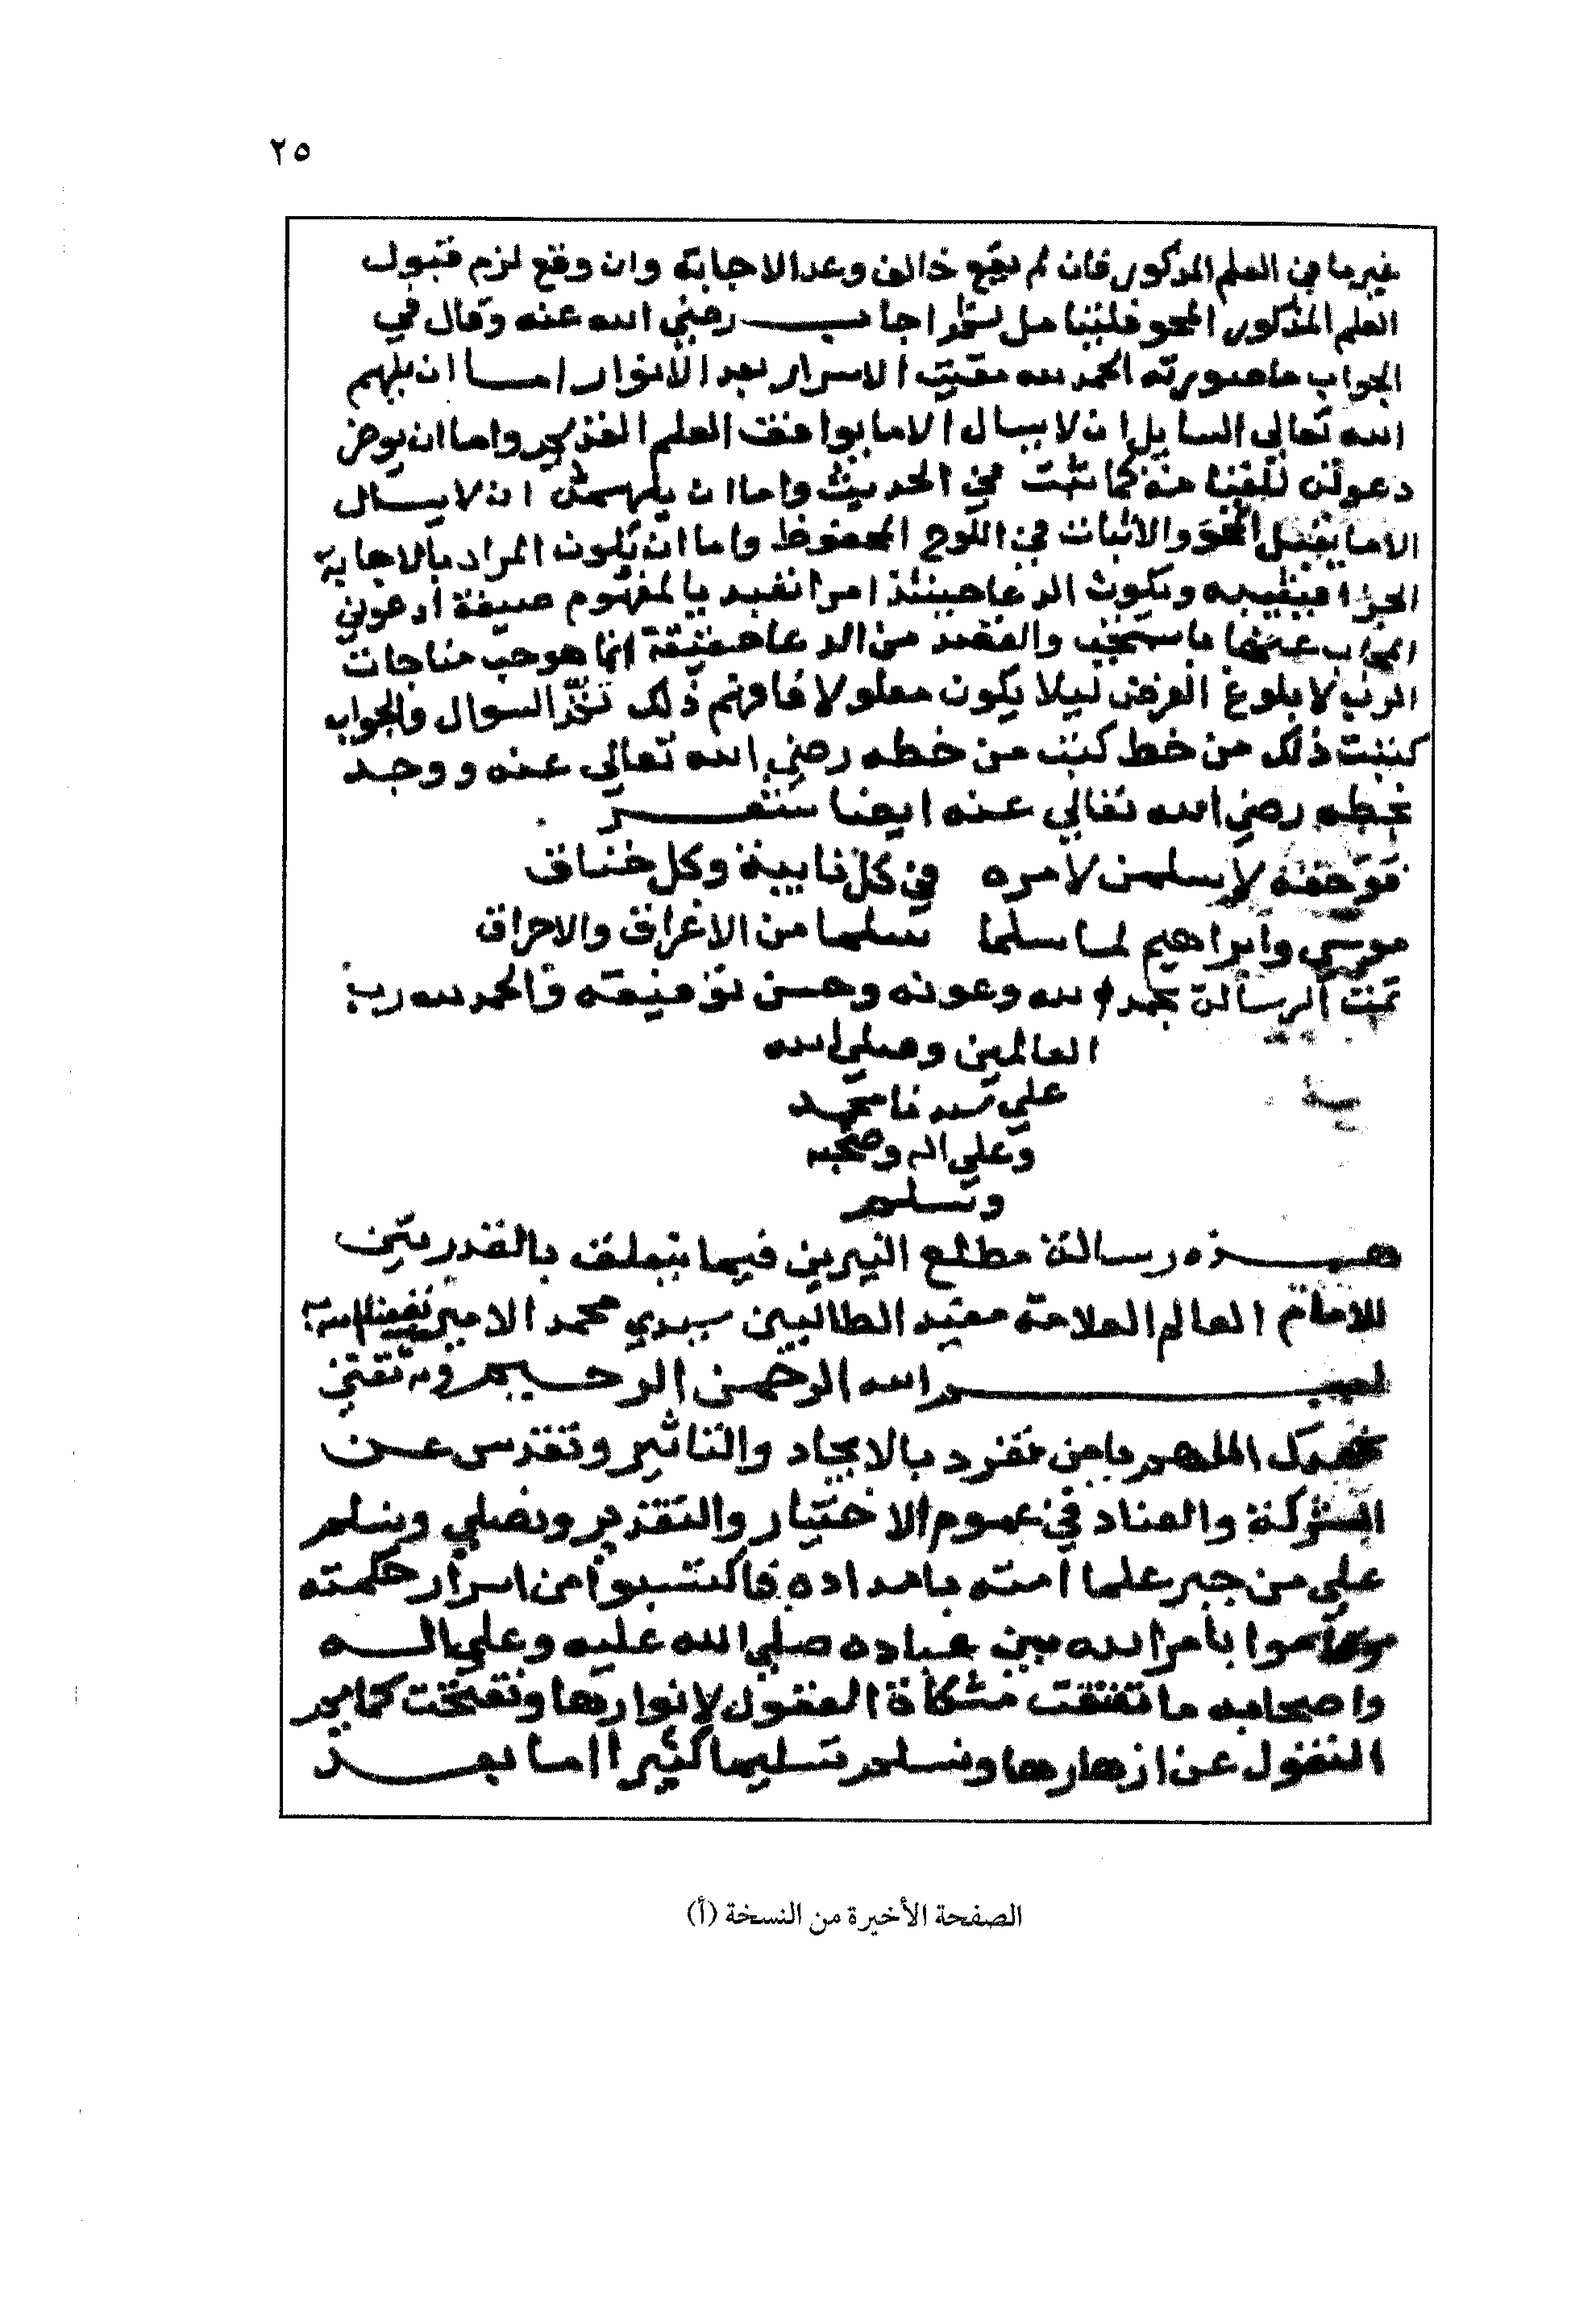 ٢٥
غير ما في العلم المذكور فان لم يقع خالف وعد الاجابة وان وقع لزم قبول
العلم المذكور المحو فليتامل ثم اجاب رضي الله عنه وقال في
الجواب ما صورته الحمد لله مفيض الاسرار بعد الانوار اما ان يلهم
الله تعالي السايل ان لا يسال الا ما يوافق العلم القديم واما ان يعوض
دعوته كما ثبت في الحديث واما ان يلهمه ان لا يسال
الا ما يقبل المحو والاثبات في اللوح المحفوظ واما ان تكون المراد بالاجابة
الجزا فيثيبه ويكون الدعا حينئذ امرا تفيد بالمفهوم صيغة ادعوني
الجواب عنها باستجب والقصد من الدعا حقيقة انما هو حب مناجات
الرب لا بلوغ الغرض ليلا يكون معلولا فافهم ذلك تم السوال والجواب
كتبت ذلك من خط كتب من خطه رضي الله تعالي عنه ووجد
بخطه رضي الله تعالي عنه ايضا شعر
فوحقه لاسلمن لامره في كل نايبة وكل خناق
موسي وابراهيم لما سلما سلما من الاغراق والاحراق
تمت الرسالة بحمد الله وعونه وحسن توفيقه والحمد لله رب
العالمين وصلي الله
علي سيدنا محمد
وعلي اله وصحبه
وسلم
هذه رسالة مطلع النيرين فيما يتعلق بالقدرتين
للامام العالم العلامة مفيد الطالبين سيدي محمد الامير نفعنا الله به
بسم الله الرحمن الرحيم وبه ثقتي
نحمدك اللهم يا من تفرد بالايجاد والتاثير وتقدس عن
الشركة والعناد في عموم الاختيار والتقدير ونصلي ونسلم
علي من جبر علما امته بامداده فاكتسبوا من اسرار حكمته
بامر الله بين عباده صلي الله عليه وعلي اله
واصحابه ما تفتقت مشكاة العقول لانوارها وتفتحت كمايم
النقول عن ازهارها ونسلم تسليما كثيرا اما بعد
الصفحة الأخيرة من النسخة (أ)